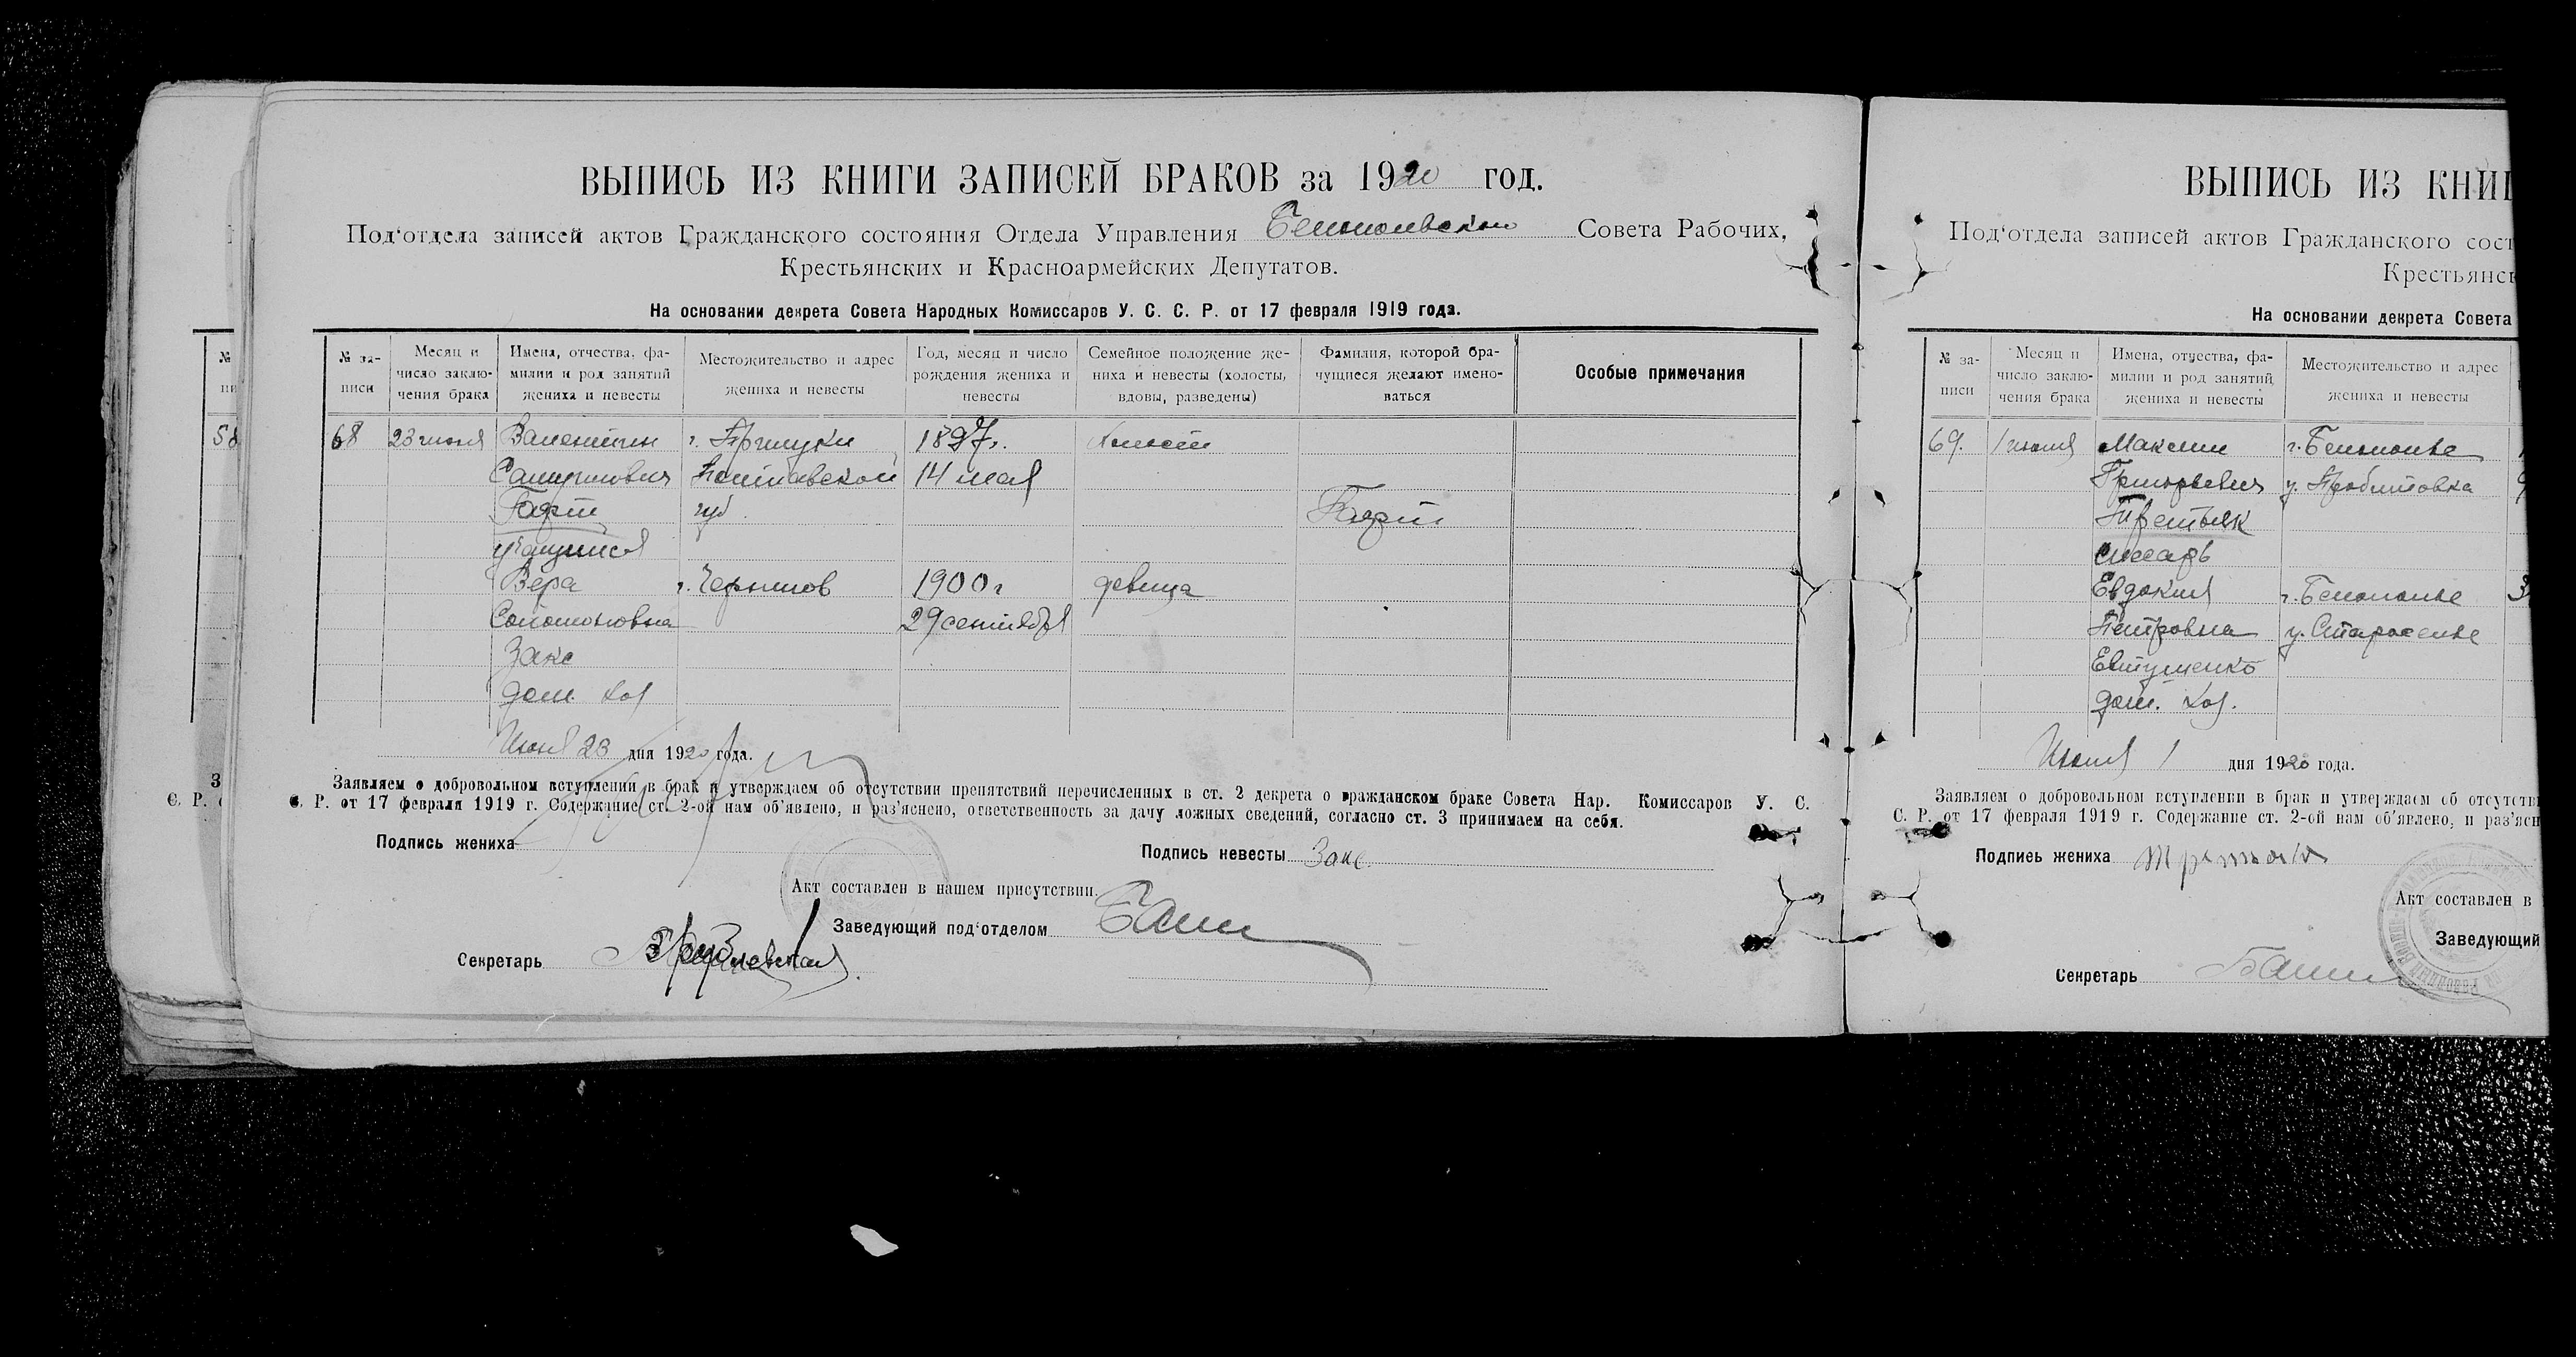 ВЫПИСЬ ИЗ КНИГИ ЗАПИСЕЙ БРАКОВ за 1920 год.
Под'отдела записей актов Гражданского состояния Отдела Управления Белопольского Совета Рабочих,
Крестьянских и Красноармейских Депутатов.
На основании декрета Совета Народных Комиссаров У. С. С. Р. от 17 февраля 1919 года.
№ записи
Месяц и число заключения брака
Имена, отчества, фамилии и род занятий жениха и невесты
Местожительство и адрес жениха и невесты
Год, месяц и число рождения жениха и невесты
Семейное положение жениха и невесты (холосты, вдовы, разведены)
Фамилия, которой брачущиеся желают именоваться
Особые примечания
58
68 23 июня Валентин г. Прилуки 1897г. Холост
Полтавской 14 мая
губ.
учащийся
Вера г. Чернигов 1900г девица
Соломоновна 29 сентября
Закс
дом. хоз
Июня 23 дня 1920 года.
Заявляем о добровольном вступлении в брак и утверждаем об отсутствии препятствий перечисленных в ст. 2 декрета о гражданском браке Совета Нар. Комиссаров У. С.
С. Р. от 17 февраля 1919 г. Содержание ст. 2-ой нам об'явлено, и раз'яснено, ответственность за дачу ложных сведений, согласно ст. 3 принимаем на себя.
Подпись жениха
Подпись невесты Закс
Акт составлен в нашем присутствии.
Заведующий под'отделом
Секретарь
ВЫПИСЬ ИЗ КНИГ
Под'отдела записей актов Гражданского сост
Крестьянск
На основании декрета Совета
№ записи
Месяц и число заключения брака
Имена, отчества, фамилии и род занятий жениха и невесты
Местожительство и адрес жениха и невесты
69. 1 июля Максим г. Белополье
Григорьевич
Третьяк
слесарь
Евдокия г. Белополье
Петровна у. Староселье
Евтушенко
дом. хоз.
Июля 1 дня 1920 года.
Заявляем о добровольном вступлении в брак и утверждаем об отсутстви
С. Р. от 17 февраля 1919 г. Содержание ст. 2-ой нам об'явлено, и раз'ясн
Подпись жениха Третьяк
Акт составлен в
Заведующий
Секретарь